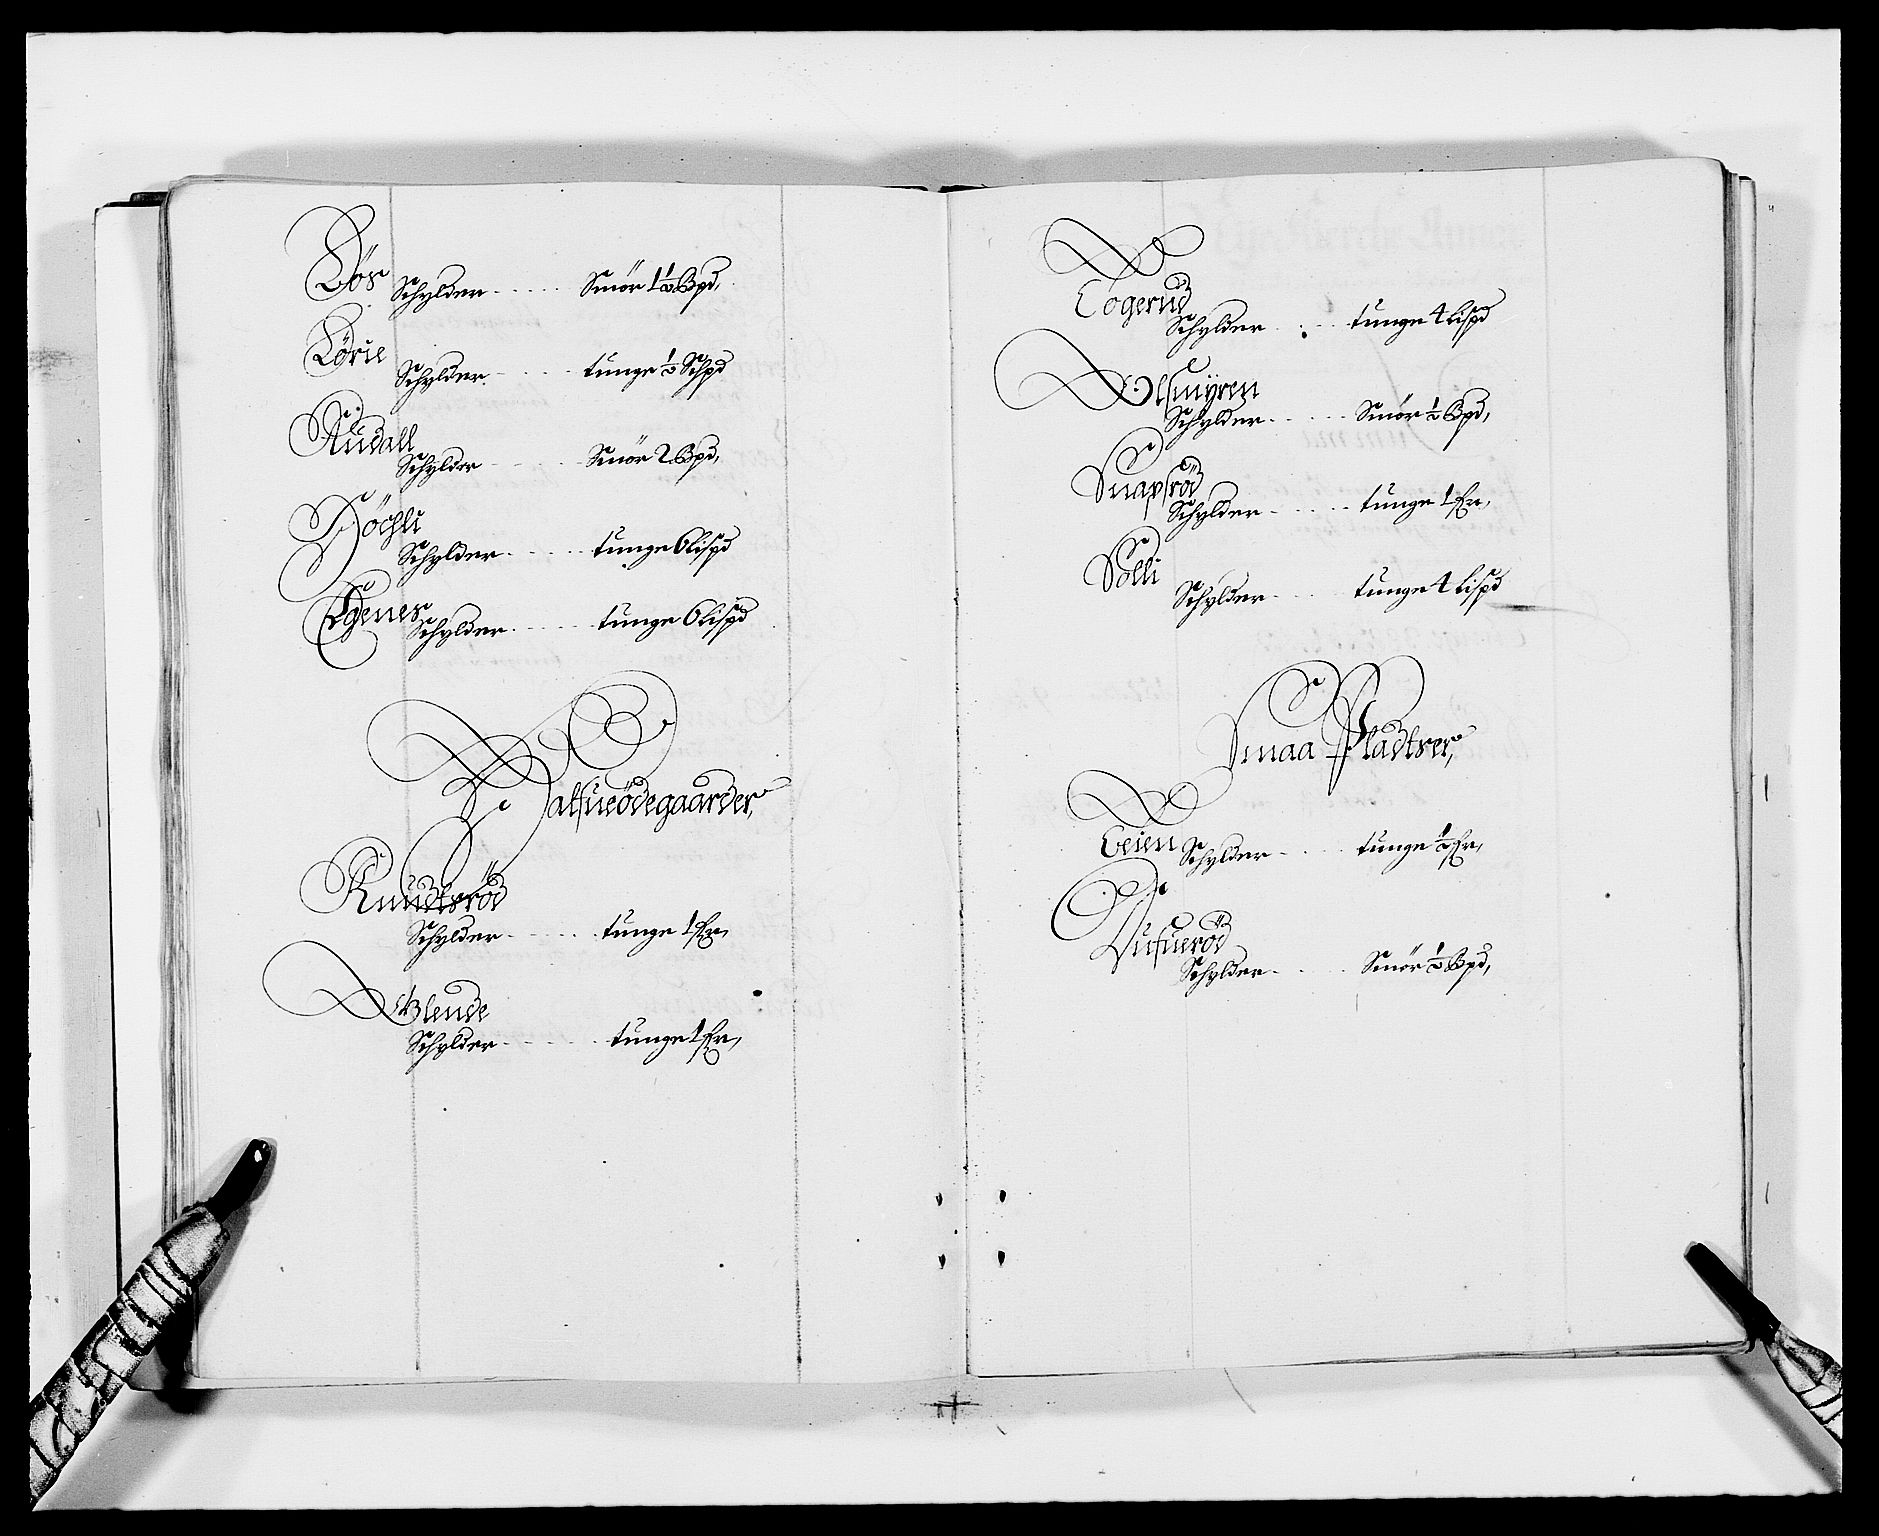 Lös
Schylder - - - - - Smör 1½ Bpd,
Lörie
Schylder - - - - tunge ½ Schpd
Rüdall
Schylder - - - - Smör 2 Bpd,
Höchli
Schylder - - - - tunge 6 Lispd
Egenes
Schylder - - - - tunge 6 Lispd
Halfueödegaarder,
Knudtsröd
Schylder - - - - tunge 1 fr,
Blende
Schylder - - - - tunge 1 fr,
Togerud
Schylder - - - - tunge 4 Lispd
Olsmÿren
Schylder - - - - Smör ½ Bpd,
Snapsröd
Schylder - - - - tunge 1 fr,
Solli
Schylder - - - - tunge 4 Lispd
Smaa Pladtser,
Teien
Schylder - - - - tunge ½ fr,
Schylder - - - - Smör ½ Bpd,